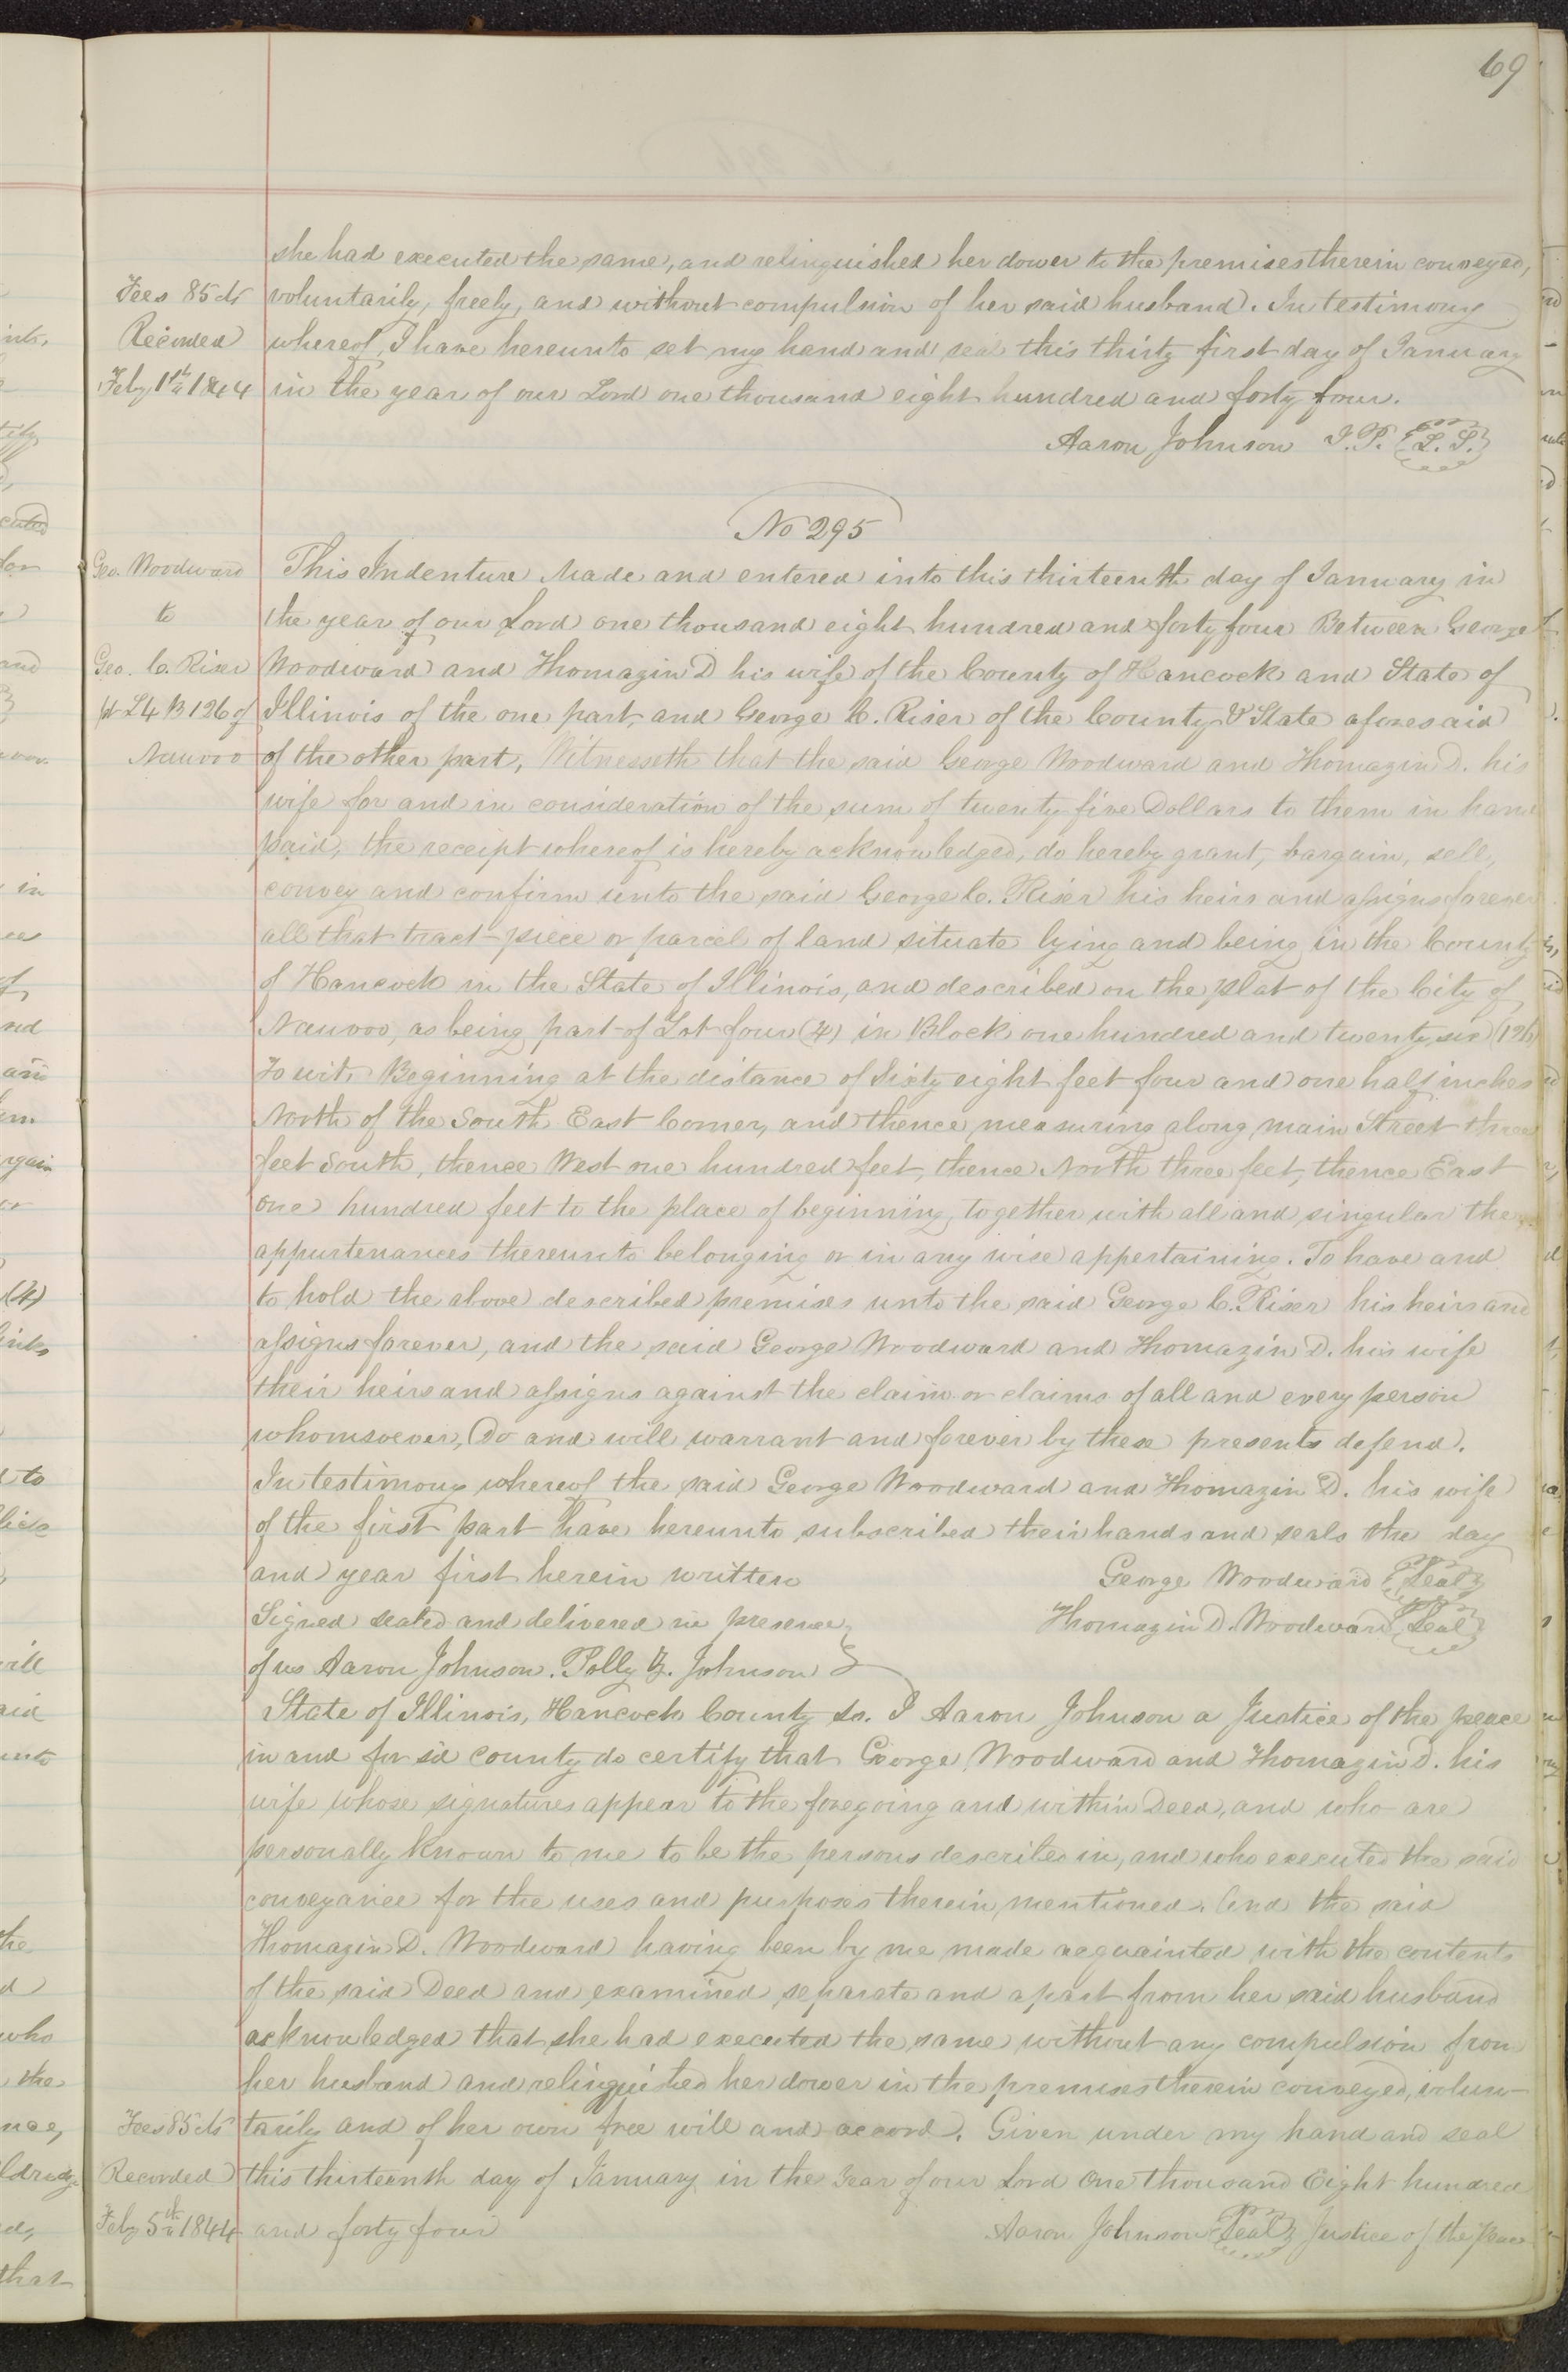 69
she had executed the same, and relinguished her dower to the premises therein conveyed,
Fees 85 cts voluntarily, freely, and without compulsion of her said husband. In testimony
Recorded whereof, I have hereunto set my hand and seal this thirty first day of January
Feby 1st 1844 in the year of our Lord one thousand eight hundred and forty four.
Aaron Johnson J.P. {L. S.}
No 295
Geo. Woodward This Indenture Made and entered into this thirteenth day of January in
to the year of our Lord one thousand eight hundred and forty four Between George
Geo. C. Riser Woodward and Thomazin D his wife of the County of Hancock and State of
pt L4 B 126 of Illinois of the one part and George C. Riser of the County & State aforesaid
Nauvoo of the other part, Witnesseth that the said George Woodward and Thomazin D. his
wife for and in consideration of the sum of twenty five Dollars to them in hand
paid, the receipt whereof is hereby acknowledged, do hereby grant, bargain, sell,
convey and confirm unto the said George C. Riser his heirs and assigns forever
all that tract piece or parcel of land situate lying and being in the County
of Hancock in the State of Illinois, and described on the plat of the City of
Nauvoo, as being part of Lot four (4) in Block one hundred and twenty six (126)
To wit, Beginning at the distance of Sixty eight feet four and one half inches
North of the South East Corner, and thence measuring along main Street three
feet South, thence West one hundred feet, thence North three feet, thence East
one hundred feet to the place of beginning, together with all and singular the
appurtenances thereunto belonging or in any wise appertaining. To have and
to hold the above described premises unto the said George C. Riser his heirs and
assigns forever, and the said George Woodward and Thomazin D. his wife
their heirs and assigns against the claim or claims of all and every person
whomsoever, Do and will warrant and forever by these presents defend.
In testimony whereof the said George Woodward and Thomazin D. his wife
of the first part have hereunto subscribed their hands and seals the day
and year first herein written George Woodward {Seal}
Signed sealed and delivered in presence Thomazin D. Woodward {Seal}
of us Aaron Johnson. Polly Z. Johnson
State of Illinois, Hancock County ss. I Aaron Johnson a Justice of the peace
in and for sd County do certify that George Woodward and Thomazin D. his
wife whose signatures appear to the foregoing and within Deed, and who are
personally known to me to be the persons described in, and who executed the said
conveyance for the uses and purposes therein mentioned. And the said
Thomazin D. Woodward having been by me made acquainted with the contents
of the said Deed and examined separate and apart from her said husband
acknowledged that she had executed the same without any compulsion from
her husband and relinguished her dower in the premises therein conveyed, volun-
Fees 85 cts tarily and of her own free will and accord. Given under my hand and seal
Recorded this thirteenth day of January in the Year of our Lord One thousand Eight hundred
Feby 5th 1844 and forty four Aaron Johnson {Seal} Justice of the Peace